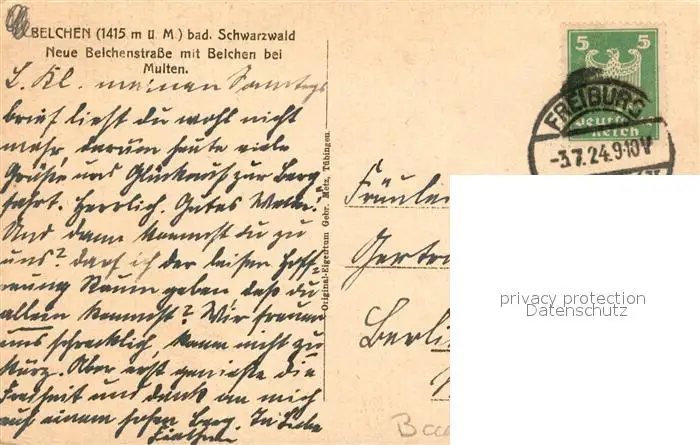 BELCHEN (1415 m ü. M.) bad. Schwarzwald
Neue Belchenstraße mit Belchen bei
Multen.
L. Kl. meinen Samstags
brief liest du wohl nicht
mehr darum heute viele
Grüße und Glückauf zur Berg
fahrt. Herrlich. Gutes Wetter!
Und dann kommst du zu
uns? darf ich der leisen Hoff-
nung Raum geben daß du
allein kommst? Wir freuen
uns schrecklich, komm nicht zu
kurz. Aber erst genieße die
Freiheit und denk an mich
auf einem hohen Berg. In Liebe
Original-Eigentum Gebr. Metz, Tübingen
5 5
Deutsches
Reich
FREIBURG
-3.7.24.9-10V
Fräulein
Gertr
Berlin
privacy protection
Datenschutz